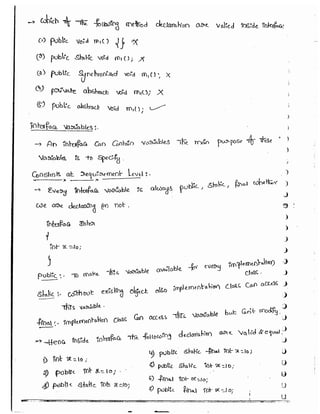 → which of the following method declaration are valied inside interface:
(1) public void m1() { } X
(2) public static void m1(); X
(3) public Synchronized void m1(); X
(4) private abstract void m1(); X
(5) public abstract void m1(); ✓
Interface variables:-
→ An interface can contain variables The main purpose of these
variables is to specify
Constants at requirement Level:-
→ Every interface variable is always public, static, final whether
we are declaring or not.
interface Inter
{
int x=10;
}
public:- To make this variable available for every implementation class.
static:- without existing object also implementation class can access
this variable.
final:- implementation class can access this variable but can't modify.
→ Hence inside interface The following declaration are valid & equal:-
1) int x=10;
2) public int x=10;
3) public static int x=10;
4) public static final int x=10;
5) public static int x=10;
6) final int x=10;
public final int x=10;